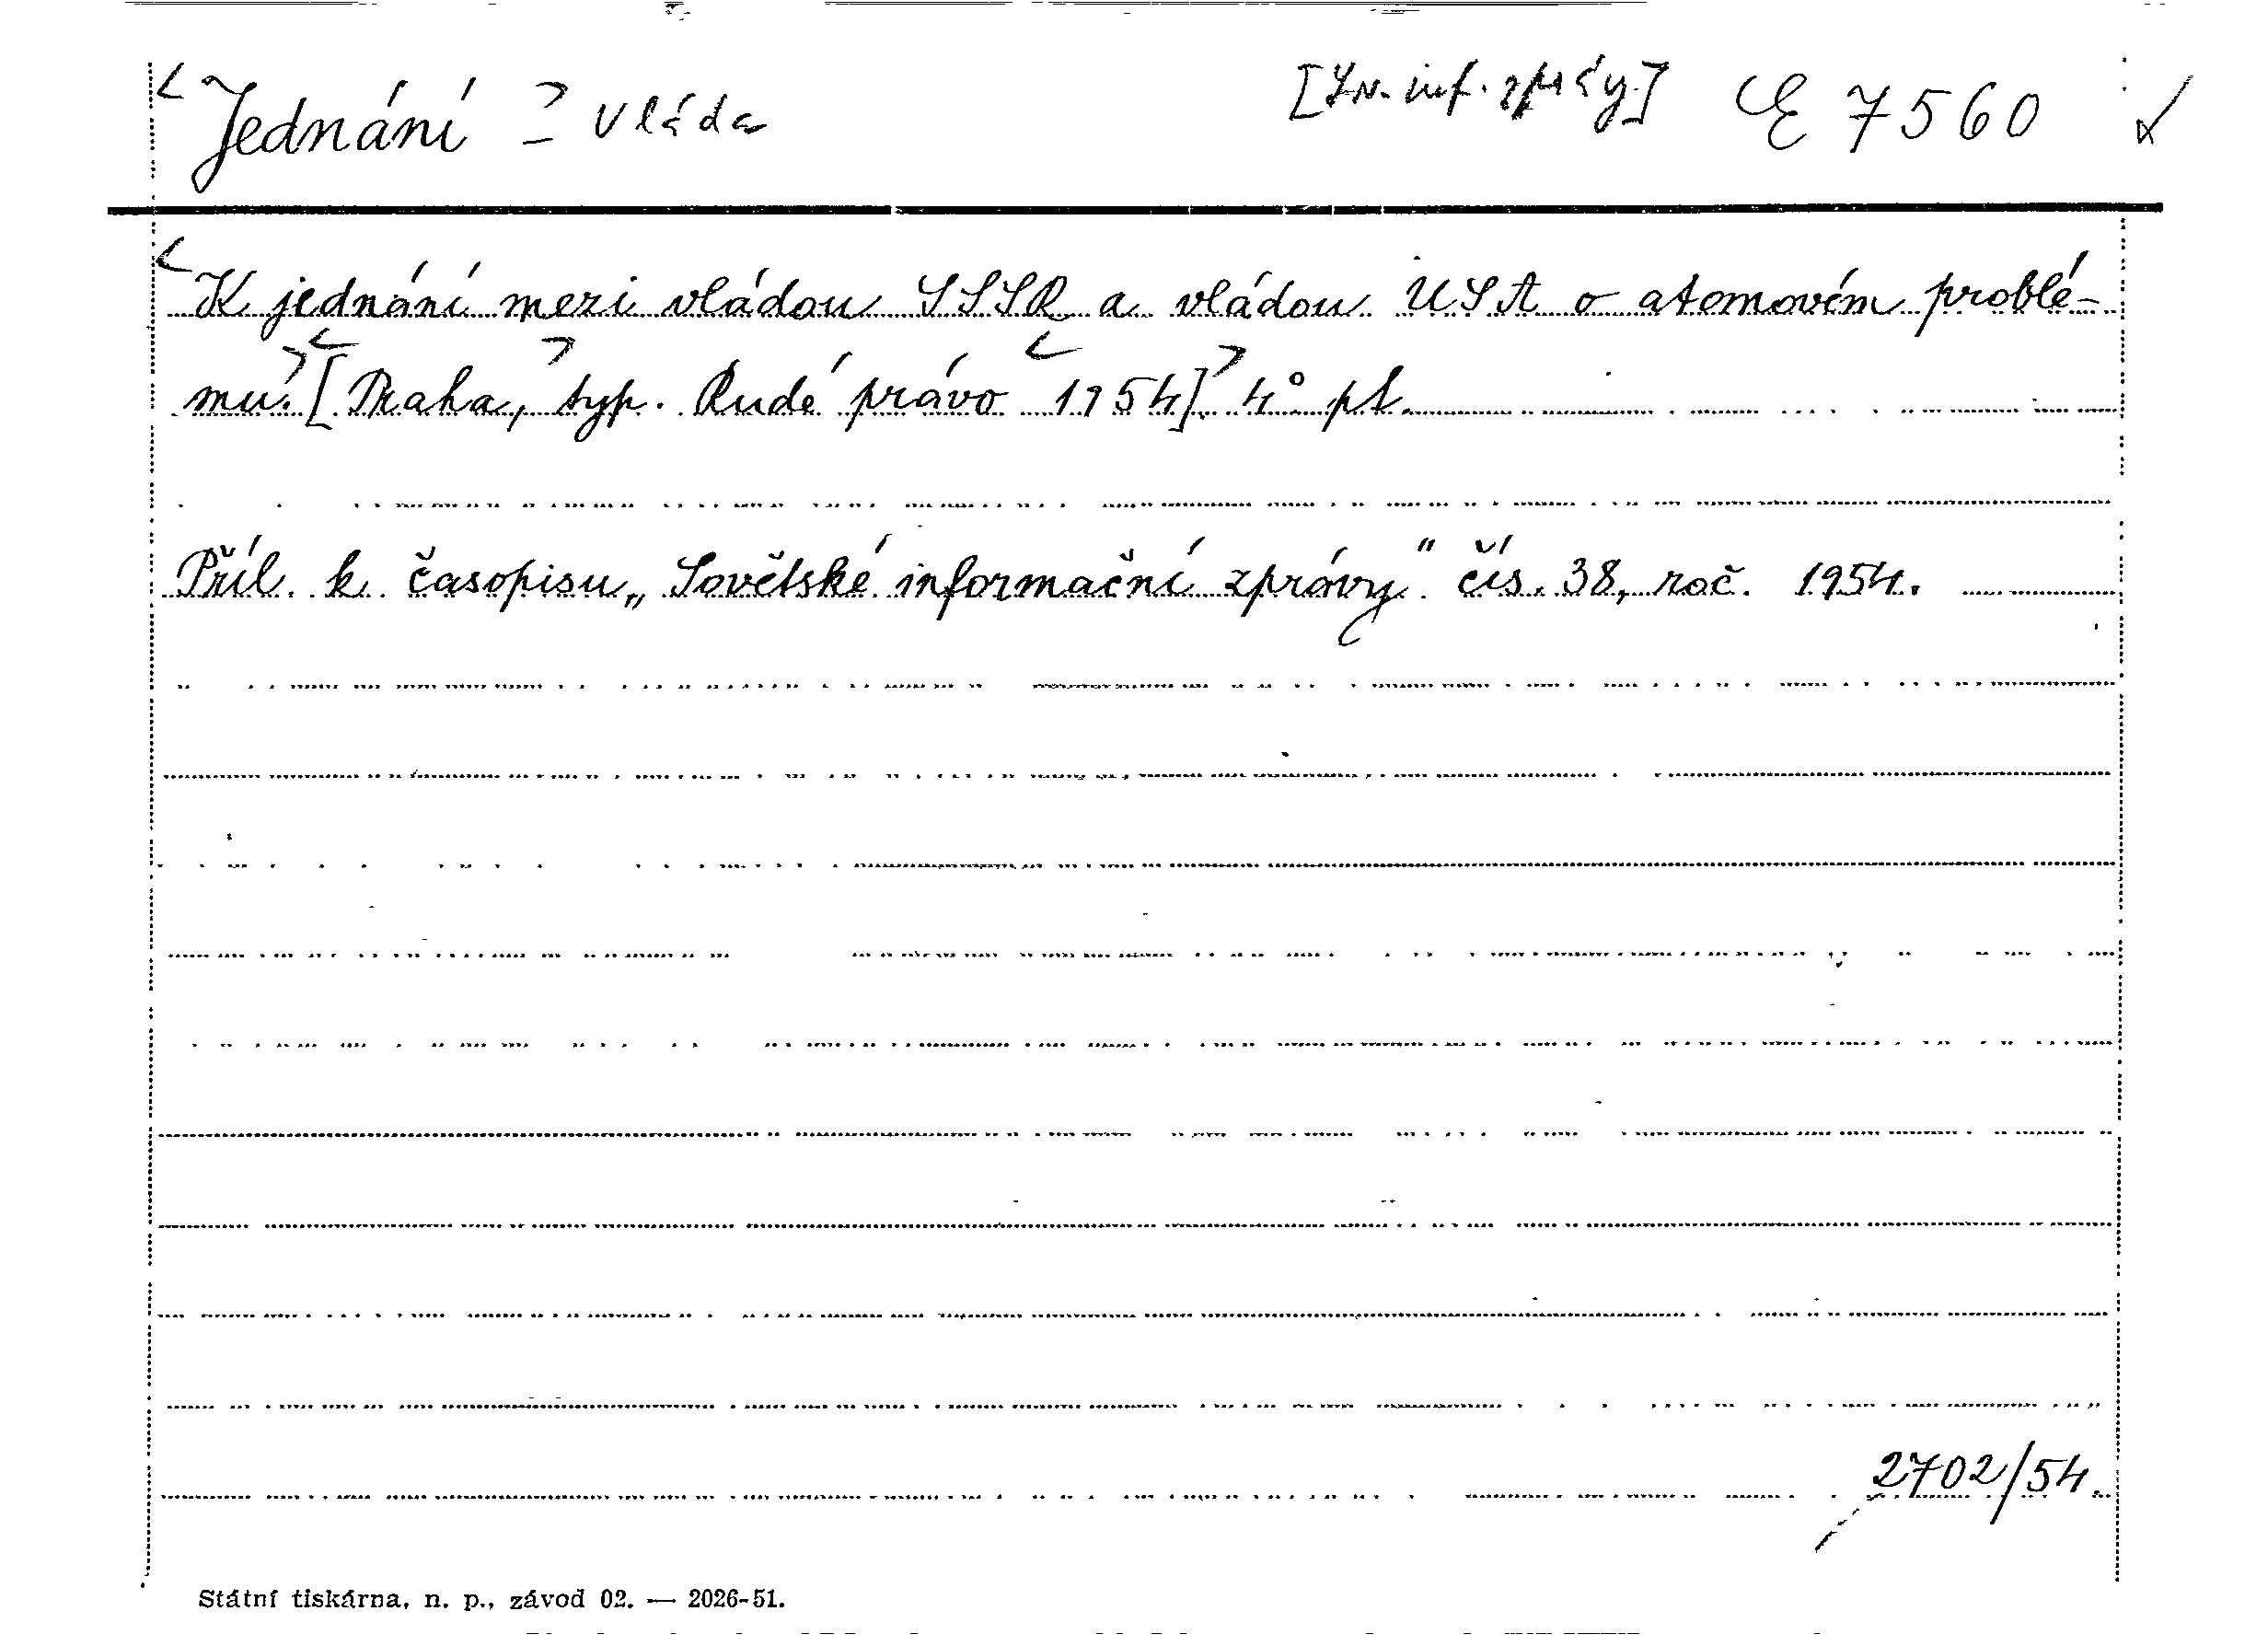 < Jednání > – vláda [Sv. inf. zprávy] E 7560
< K jednání mezi vládou SSSR a vládou USA o atomovém problé-
mu. > [ < Praha, > typ. Rudé právo < 1954]. > 4° pt.
Příl. k časopisu „Sovětské informační zprávy“ čís. 38, roč. 1954.
2702/54.
Státní tiskárna, n. p., závod 02. — 2026-51.